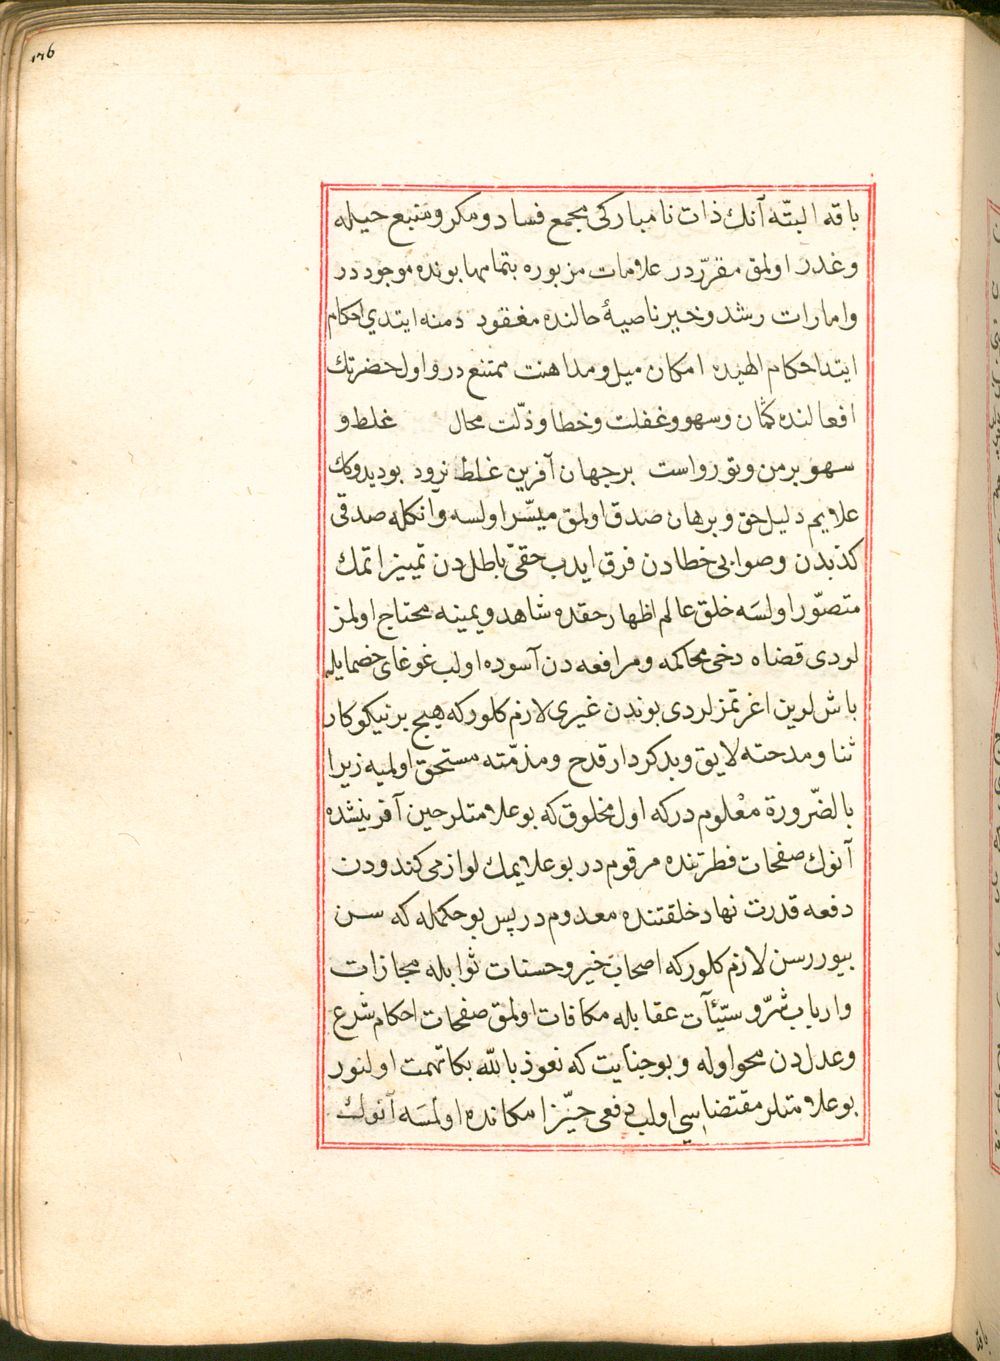 ١٣٦
باقه البتّه آنك ذات نامباركى مجمع فساد ومكر ومنبع حيله
وغدر اولمق مقرّردر علامات مزبوره بتمامها بونده موجوددر
وامارات رشد وخير ناصيۀ حالنده مفقود دمنه ايتدي احكام
ايتدا حكام الهيده امكان ميل ومداهنت ممتنع در واول حضرتك
افعالنده كمان وسهو وغفلت وخطا وذلّت محال غلط و
سهو بر من وتو رواست بر جهان آفرين غلط نرود بو ديدوكك
علايم دليل حق وبرهان صدق اولمق ميسّر اولسه وآنكله صدقى
كذبدن وصوابى خطادن فرق ايدب حقىّ باطلدن تمييز اتمك
متصوّر اولسَه خلق عالم اظهار حقده شاهد ويمينه محتاج اولمز
لردى قضاه دخى محاكمه ومرافعه دن آسوده اولب غوغاى خصمايله
باش لرين اغرتمزلردى بوندن غيرى لازم كلور كه هيچ بر نيكوكار
ثنا ومدحته لايق وبدكردار قدح ومذمّته مستحق اولميه زيرا
بالضّرورة معْلوم دركه اول مخلوق كه بو علامتلر حين آفرينشده
آنوك صفحات فطرتنده مرقوم در بو علايمك لوازمى كندودن
دفعه قدرت نهاد خلقتنده معدوم در پس بو حكمله كه سن
بيوررسن لازم كلور كه اصحاب خير وحسنات ثوابله مجازات
وارباب شرّ وسيّئآت عقابله مكافات اولمق صفحات احكام شرع
وعدلدن محو اوله وبو جنايت كه نعوذ بالله بكا تهمت اولنور
بو علامتلر مقتضاسي اولب دفعى حيّز امكانده اولمسَه آنوك